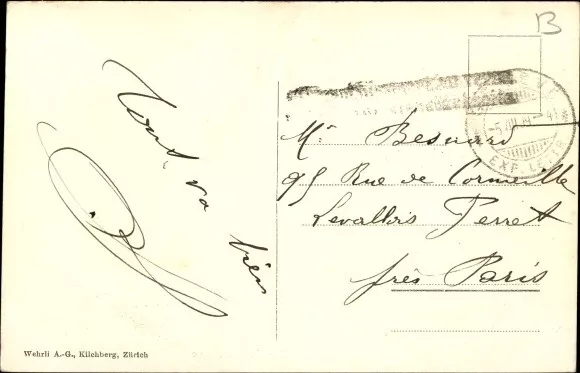 B
Tout va bien
Mr Besnard
95 Rue de Cormeille
Levallois Perret
près Paris
EXP. LETTR.
Wehrli A.-G., Kilchberg, Zürich